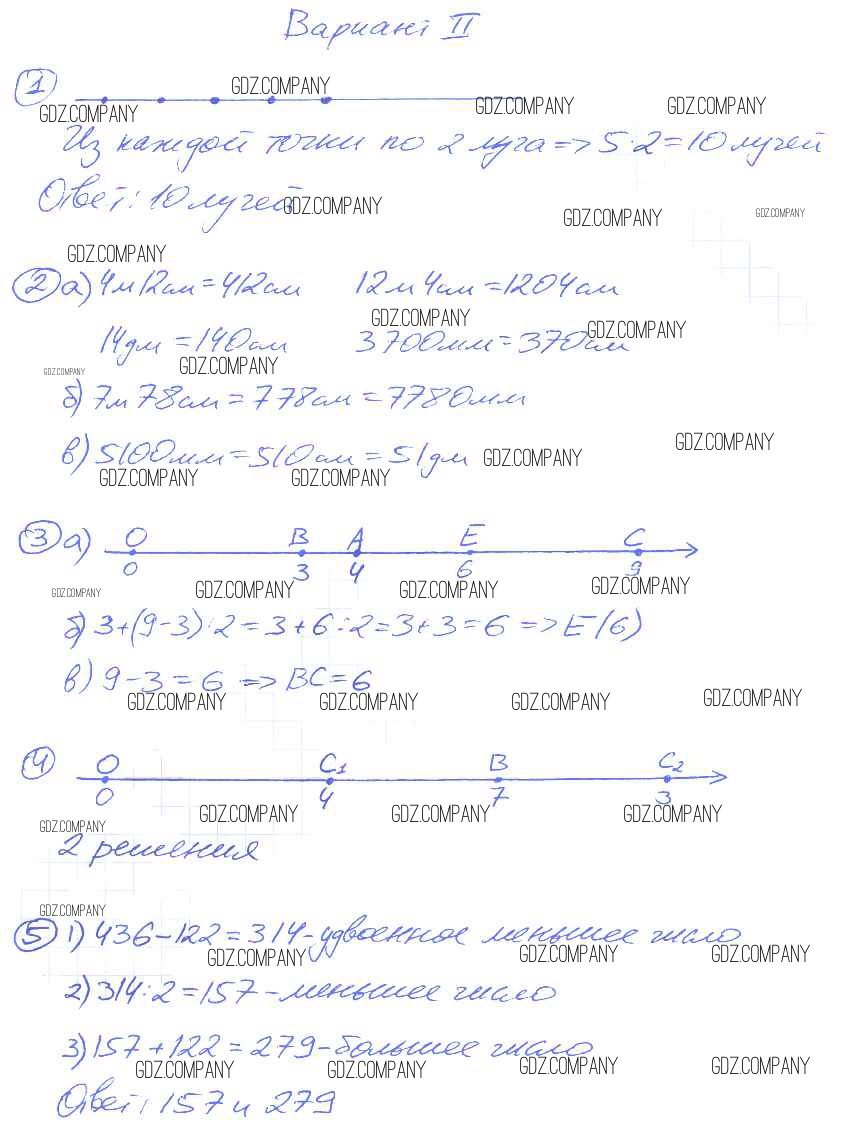 Вариант II
1
GDZ.COMPANY
GDZ.COMPANY GDZ.COMPANY GDZ.COMPANY
Из каждой точки по 2 луча => 5·2=10 лучей
Ответ: 10 лучей GDZ.COMPANY
GDZ.COMPANY GDZ.COMPANY
GDZ.COMPANY
2 а) 4м12см=412см 12м4см=1204см
GDZ.COMPANY GDZ.COMPANY
14дм=140см 3700мм=370см
GDZ.COMPANY GDZ.COMPANY
б) 7м78см=778см=7780мм
GDZ.COMPANY
в) 5100мм=510см=51дм GDZ.COMPANY
GDZ.COMPANY GDZ.COMPANY
3 а) O B A E C
0 3 4 6 9
GDZ.COMPANY GDZ.COMPANY GDZ.COMPANY GDZ.COMPANY
б) 3+(9-3):2=3+6:2=3+3=6 => E(6)
в) 9-3=6 => BC=6
GDZ.COMPANY GDZ.COMPANY GDZ.COMPANY GDZ.COMPANY
4 O C1 B C2
0 4 7 3
GDZ.COMPANY GDZ.COMPANY GDZ.COMPANY
GDZ.COMPANY
2 решения
GDZ.COMPANY
5 1) 436-122=314-удвоенное меньшее число
GDZ.COMPANY GDZ.COMPANY GDZ.COMPANY
2) 314:2=157-меньшее число
3) 157+122=279-большее число
GDZ.COMPANY GDZ.COMPANY GDZ.COMPANY GDZ.COMPANY
Ответ: 157 и 279